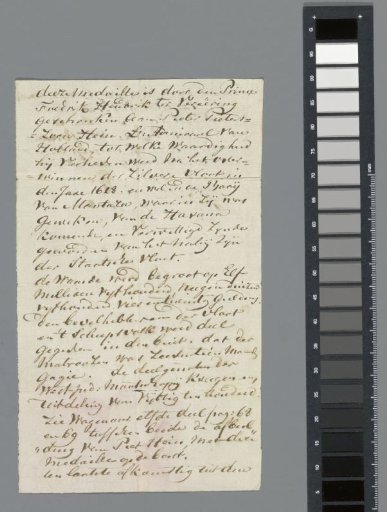 deze Medaille is door den Prins
Fredrik Hendrik ter Vereering
geschonken aan Pieter Pieters-
zoon Hein, Lr. Admiraal van
Holland, tot welke waardigheid
hij Verheven werd na het over-
winnen der Zilvere Vloot in
den Jare 1628. in de Baaij
van Mantaza, waar in zij was
Geweken, van de Havana
komende, en
geworden van het
der Staatsche Vloot.
de Waarde werd begroot op Elf
Millioen vijfhonderd Negen
vijfhonderd vier en twintig Guldens,
den bevelhebber van der Vloot
en 't Scheepsvolk werd deel
gegeven in den buit, dat der
Matroosen was Zeventien Maand
Gagie. de deelgenoten der
Westind. Maatschappy kreegen eene
Uitdeling van Vyftig ten honderd
Zie Wagenaar elfde deel pag: 68
en 69 tusschen beide de afbeel-
ding van Piet Hein, Met deze
Medaille op de borst.
ten laatste afkomstig uit den